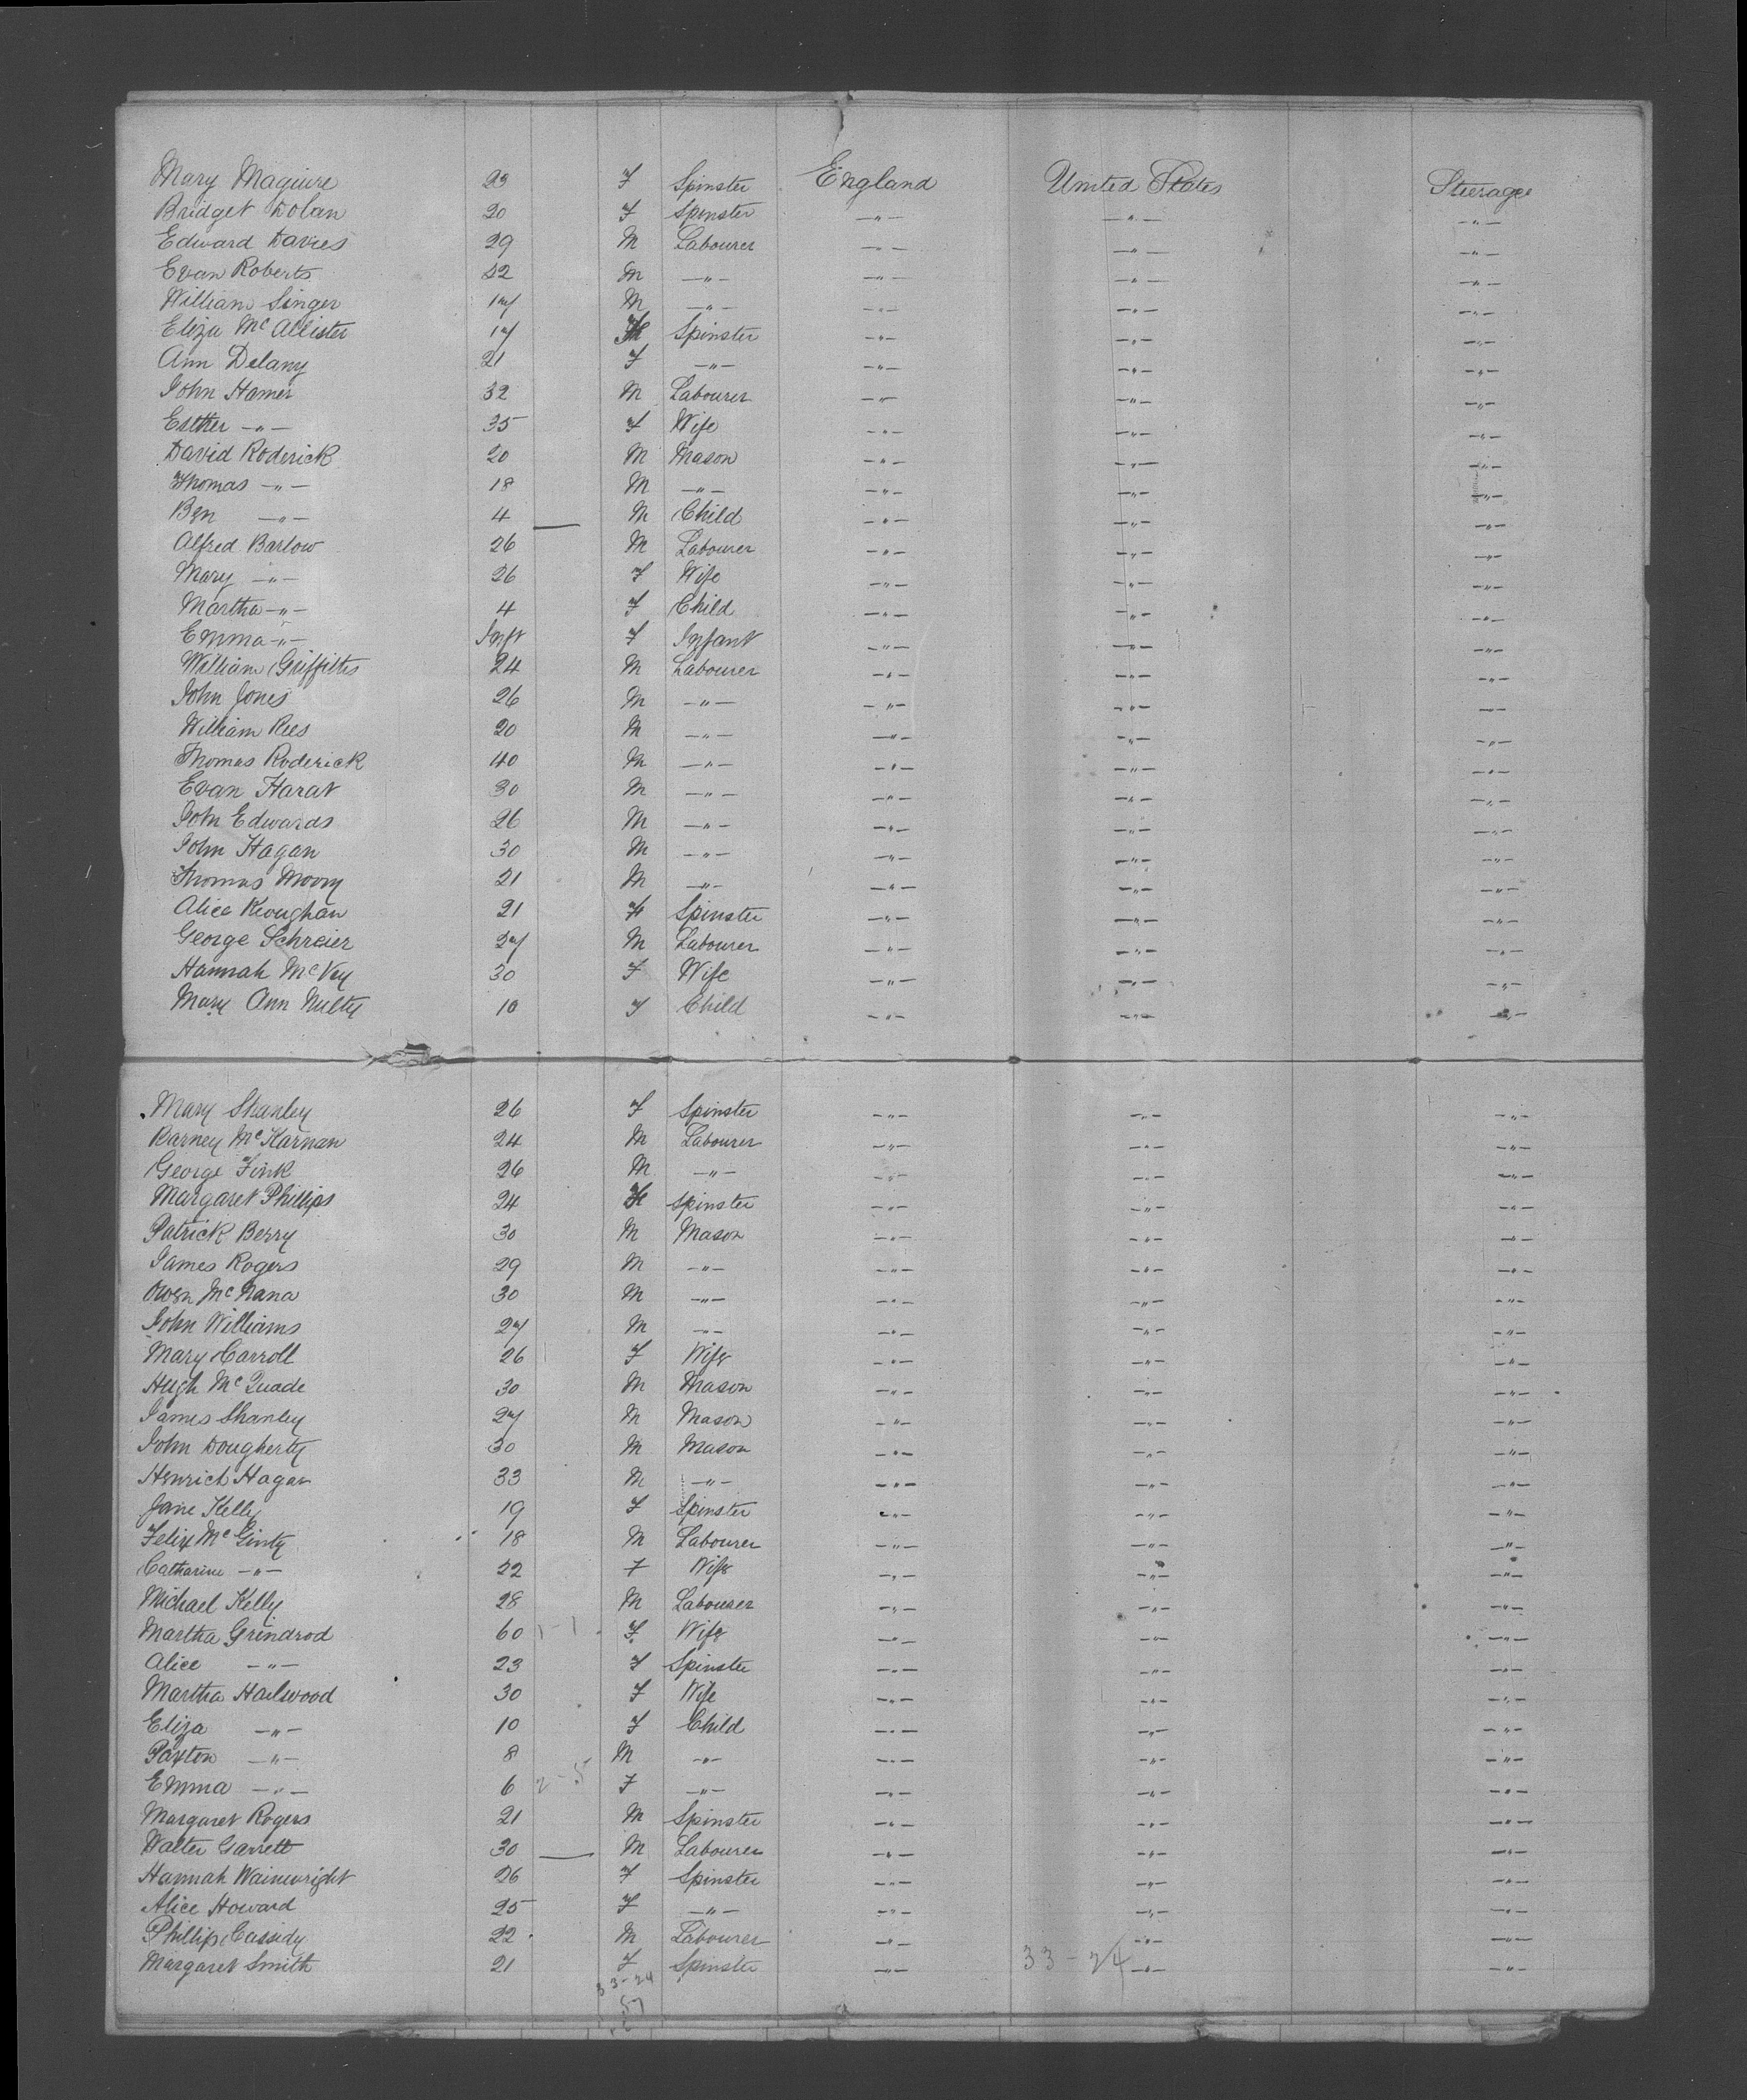 Mary Maguire 23 F Spinster England United States Steerage
Bridget Dolan 20 F Spinster -"- -"- -"-
Edward Davies 29 M Labourer -"- -"- -"-
Evan Roberts 42 M -"- -"- -"- -"-
William Singer 17 M -"- -"- -"- -"-
Eliza McAllister 17 F Spinster -"- -"- -"-
Ann Delany 21 F -"- -"- -"- -"-
John Hamer 32 M Labourer -"- -"- -"-
Esther -"- 35 F Wife -"- -"- -"-
David Roderick 20 M Mason -"- -"- -"-
Thomas -"- 18 M -"- -"- -"- -"-
Ben -"- 4 M Child -"- -"- -"-
Alfred Barlow 26 M Labourer -"- -"- -"-
Mary -"- 26 F Wife -"- -"- -"-
Martha -"- 4 F Child -"- -"- -"-
Emma -"- Inft F Infant -"- -"- -"-
William Griffiths 24 M Labourer -"- -"- -"-
John Jones 26 M -"- -"- -"- -"-
William Rees 20 M -"- -"- -"- -"-
Thomas Roderick 40 M -"- -"- -"- -"-
Evan Harat 30 M -"- -"- -"- -"-
John Edwards 26 M -"- -"- -"- -"-
John Hagan 30 M -"- -"- -"- -"-
Thomas 21 M -"- -"- -"- -"-
Alice Keoughan 21 F Spinster -"- -"- -"-
George Schreier 27 M Labourer -"- -"- -"-
Hannah McVey 30 F Wife -"- -"- -"-
Mary Ann Nulty 10 F Child -"- -"- -"-
Mary Shanley 26 F Spinster -"- -"- -"-
Barney McKarnan 24 M Labourer -"- -"- -"-
George Fink 26 M -"- -"- -"- -"-
Margaret Phillips 24 F Spinster -"- -"- -"-
Patrick Berry 30 M Mason -"- -"- -"-
James Rogers 29 M -"- -"- -"- -"-
Owen McNana 30 M -"- -"- -"- -"-
John Williams 27 M -"- -"- -"- -"-
Mary Carroll 26 F Wife -"- -"- -"-
Hugh McQuade 30 M Mason -"- -"- -"-
James Shanley 27 M Mason -"- -"- -"-
John Dougherty 30 M Mason -"- -"- -"-
Henrich Hagan 33 M -"- -"- -"- -"-
Jane Kelly 19 F Spinster -"- -"- -"-
Felix McGinty 18 M Labourer -"- -"- -"-
Catharine -"- 22 F Wife -"- -"- -"-
Michael Kelly 28 M Labourer -"- -"- -"-
Martha Grindrod 60 1-1 F Wife -"- -"- -"-
Alice -"- 23 F Spinster -"- -"- -"-
Martha Hailwood 30 F Wife -"- -"- -"-
Eliza -"- 10 F Child -"- -"- -"-
Paxton -"- 8 M -"- -"- -"- -"-
Emma -"- 6 2-5 F -"- -"- -"- -"-
Margaret Rogers 21 M Spinster -"- -"- -"-
Walter Garrett 30 M Labourer -"- -"- -"-
Hannah Wainwright 26 F Spinster -"- -"- -"-
Alice Howard 25 F -"- -"- -"- -"-
Phillip Cassidy 22 M Labourer -"- -"- -"-
Margaret Smith 21 F Spinster -"- 33-24 -"- -"-
33-24
57